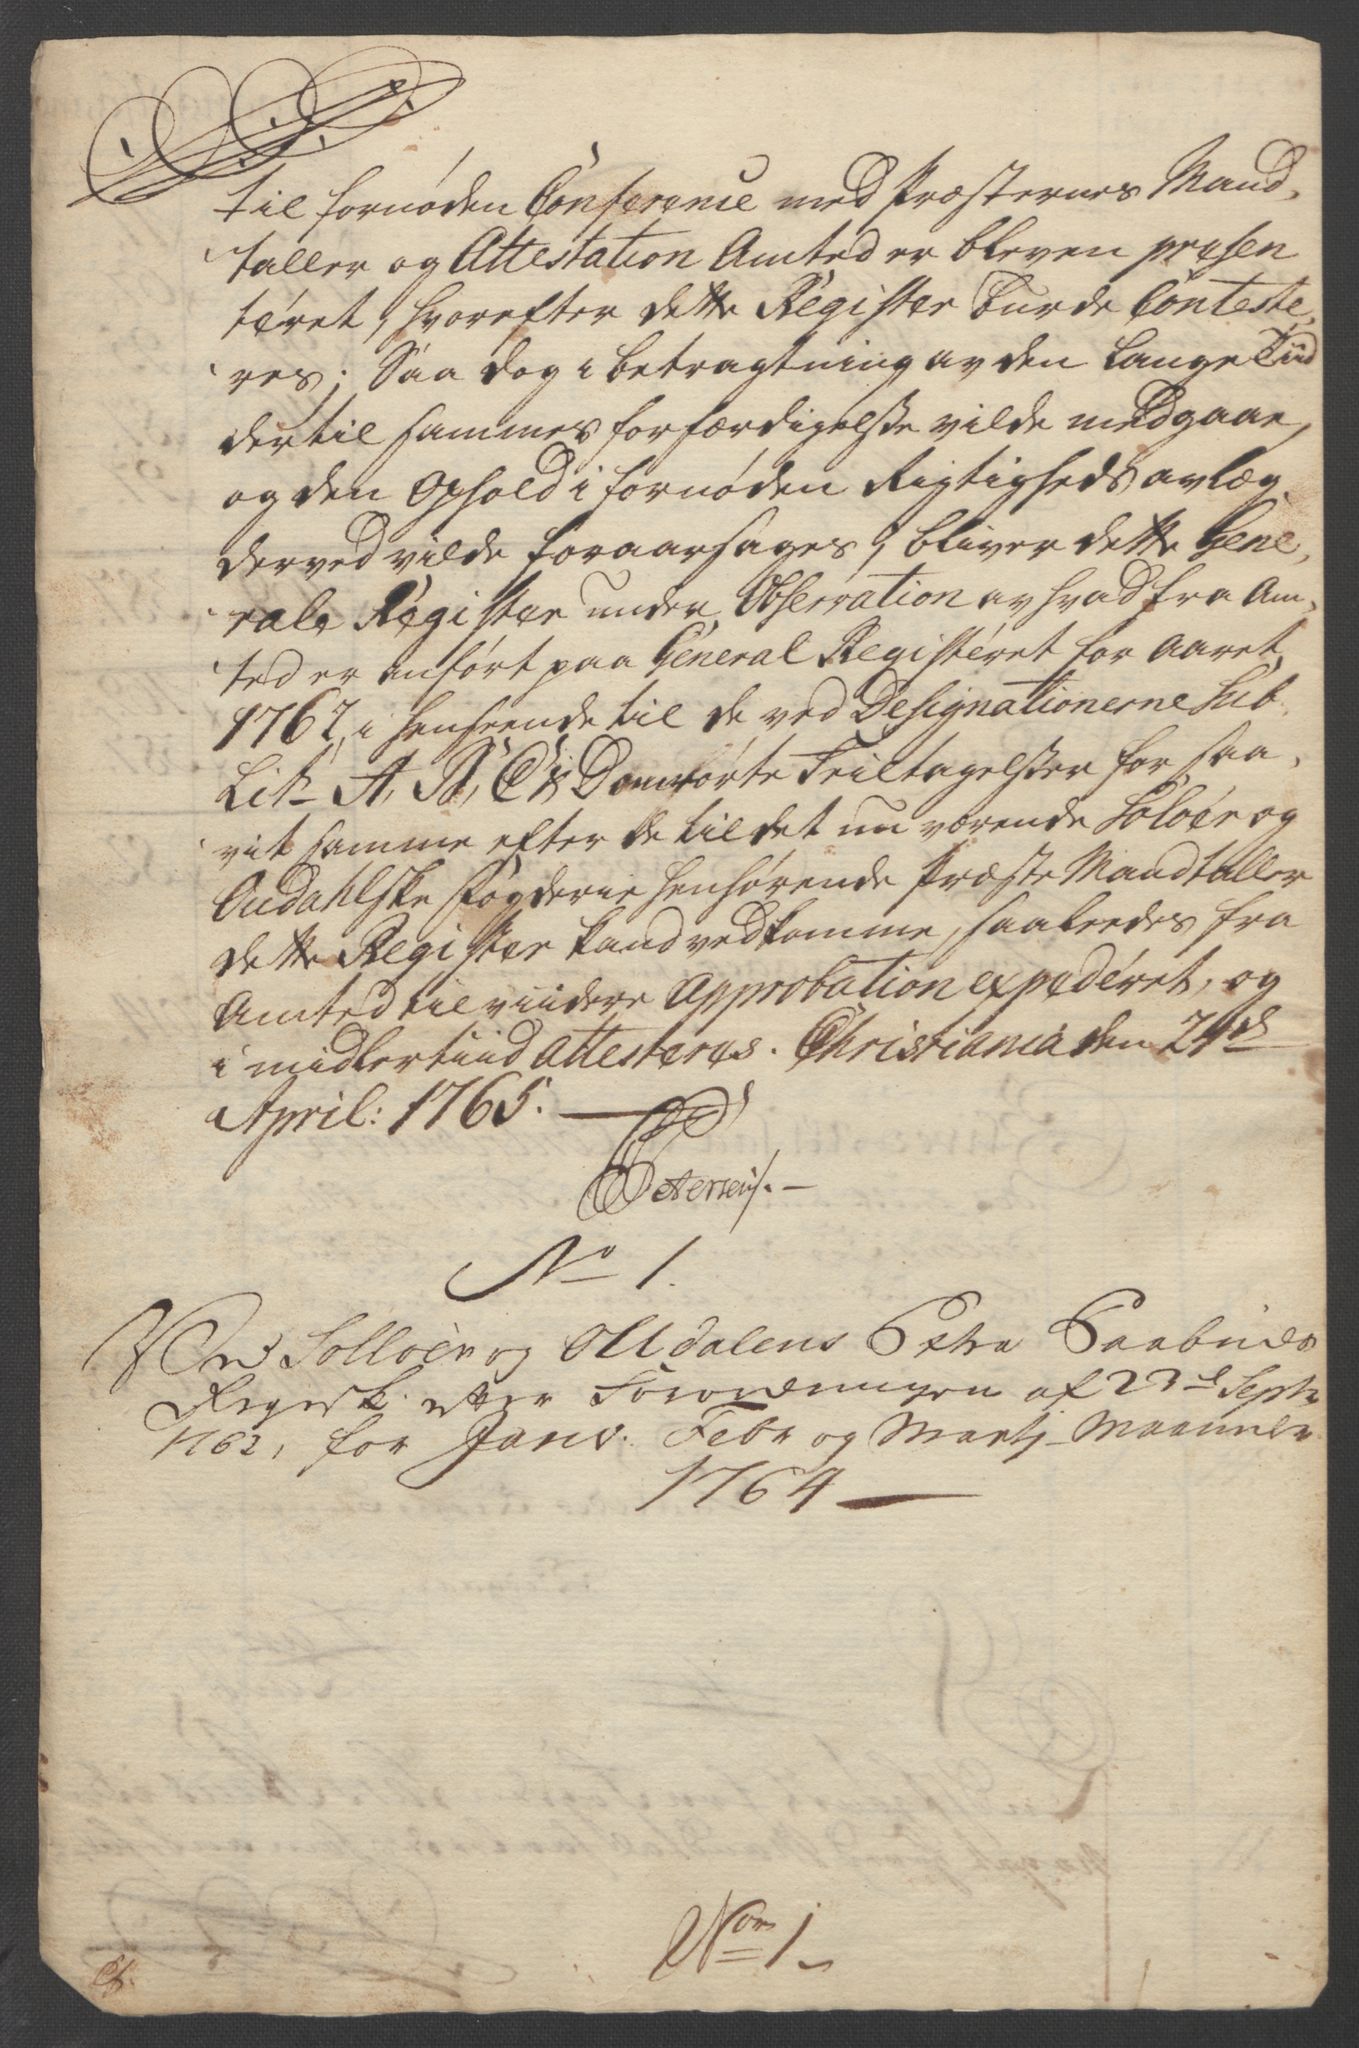 til fornøden Conference med Præsternes Mand,
taller og Attestation Amted er bleven præsen
téret, hvorefter dette Register burde Conteste,
res; Saa dog i betragtning av den lange Tiid
dertil sammes forfærdigelsse vilde medgaae,
og den Ophold i fornøden Rigtigheds avlæg
derved vilde foraarsages, bliver dette Gene,
rale Register under Observation av hvad fra Am,
ted er anført paa General Registeret for Aaret
1762, i henseende til de ved Designationerne Sub
Litr A, B, C & D omrørte Feiltagelsser for saa,
vit samme efter de til det nu værende Soløer og
Oudahlske Fogderie henhørende Præste Mandtaller
dette Register kand vedkomme, saaleedes fra
Amted til viidere Approbation expedéret, og
i midlertiid attesteres. Christiania den 24de
April: 1765.
Petersen
No 1.
Solloer og Oudalens Extra Paabuds
Regist. efter Forordningen af 23de Septr
1762, for Janv. Febr og Martj Maaneder
1764
No 1